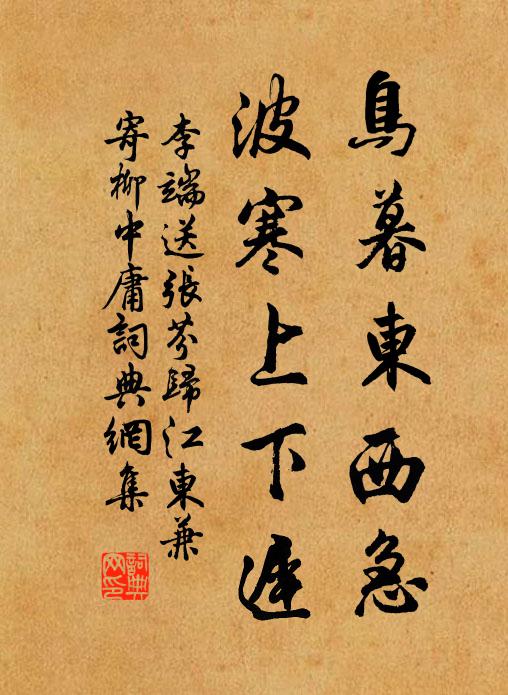 鳥暮東西急
波寒上下遲
李端送張芬歸江東兼
寄柳中庸詞典網集
詞典网印